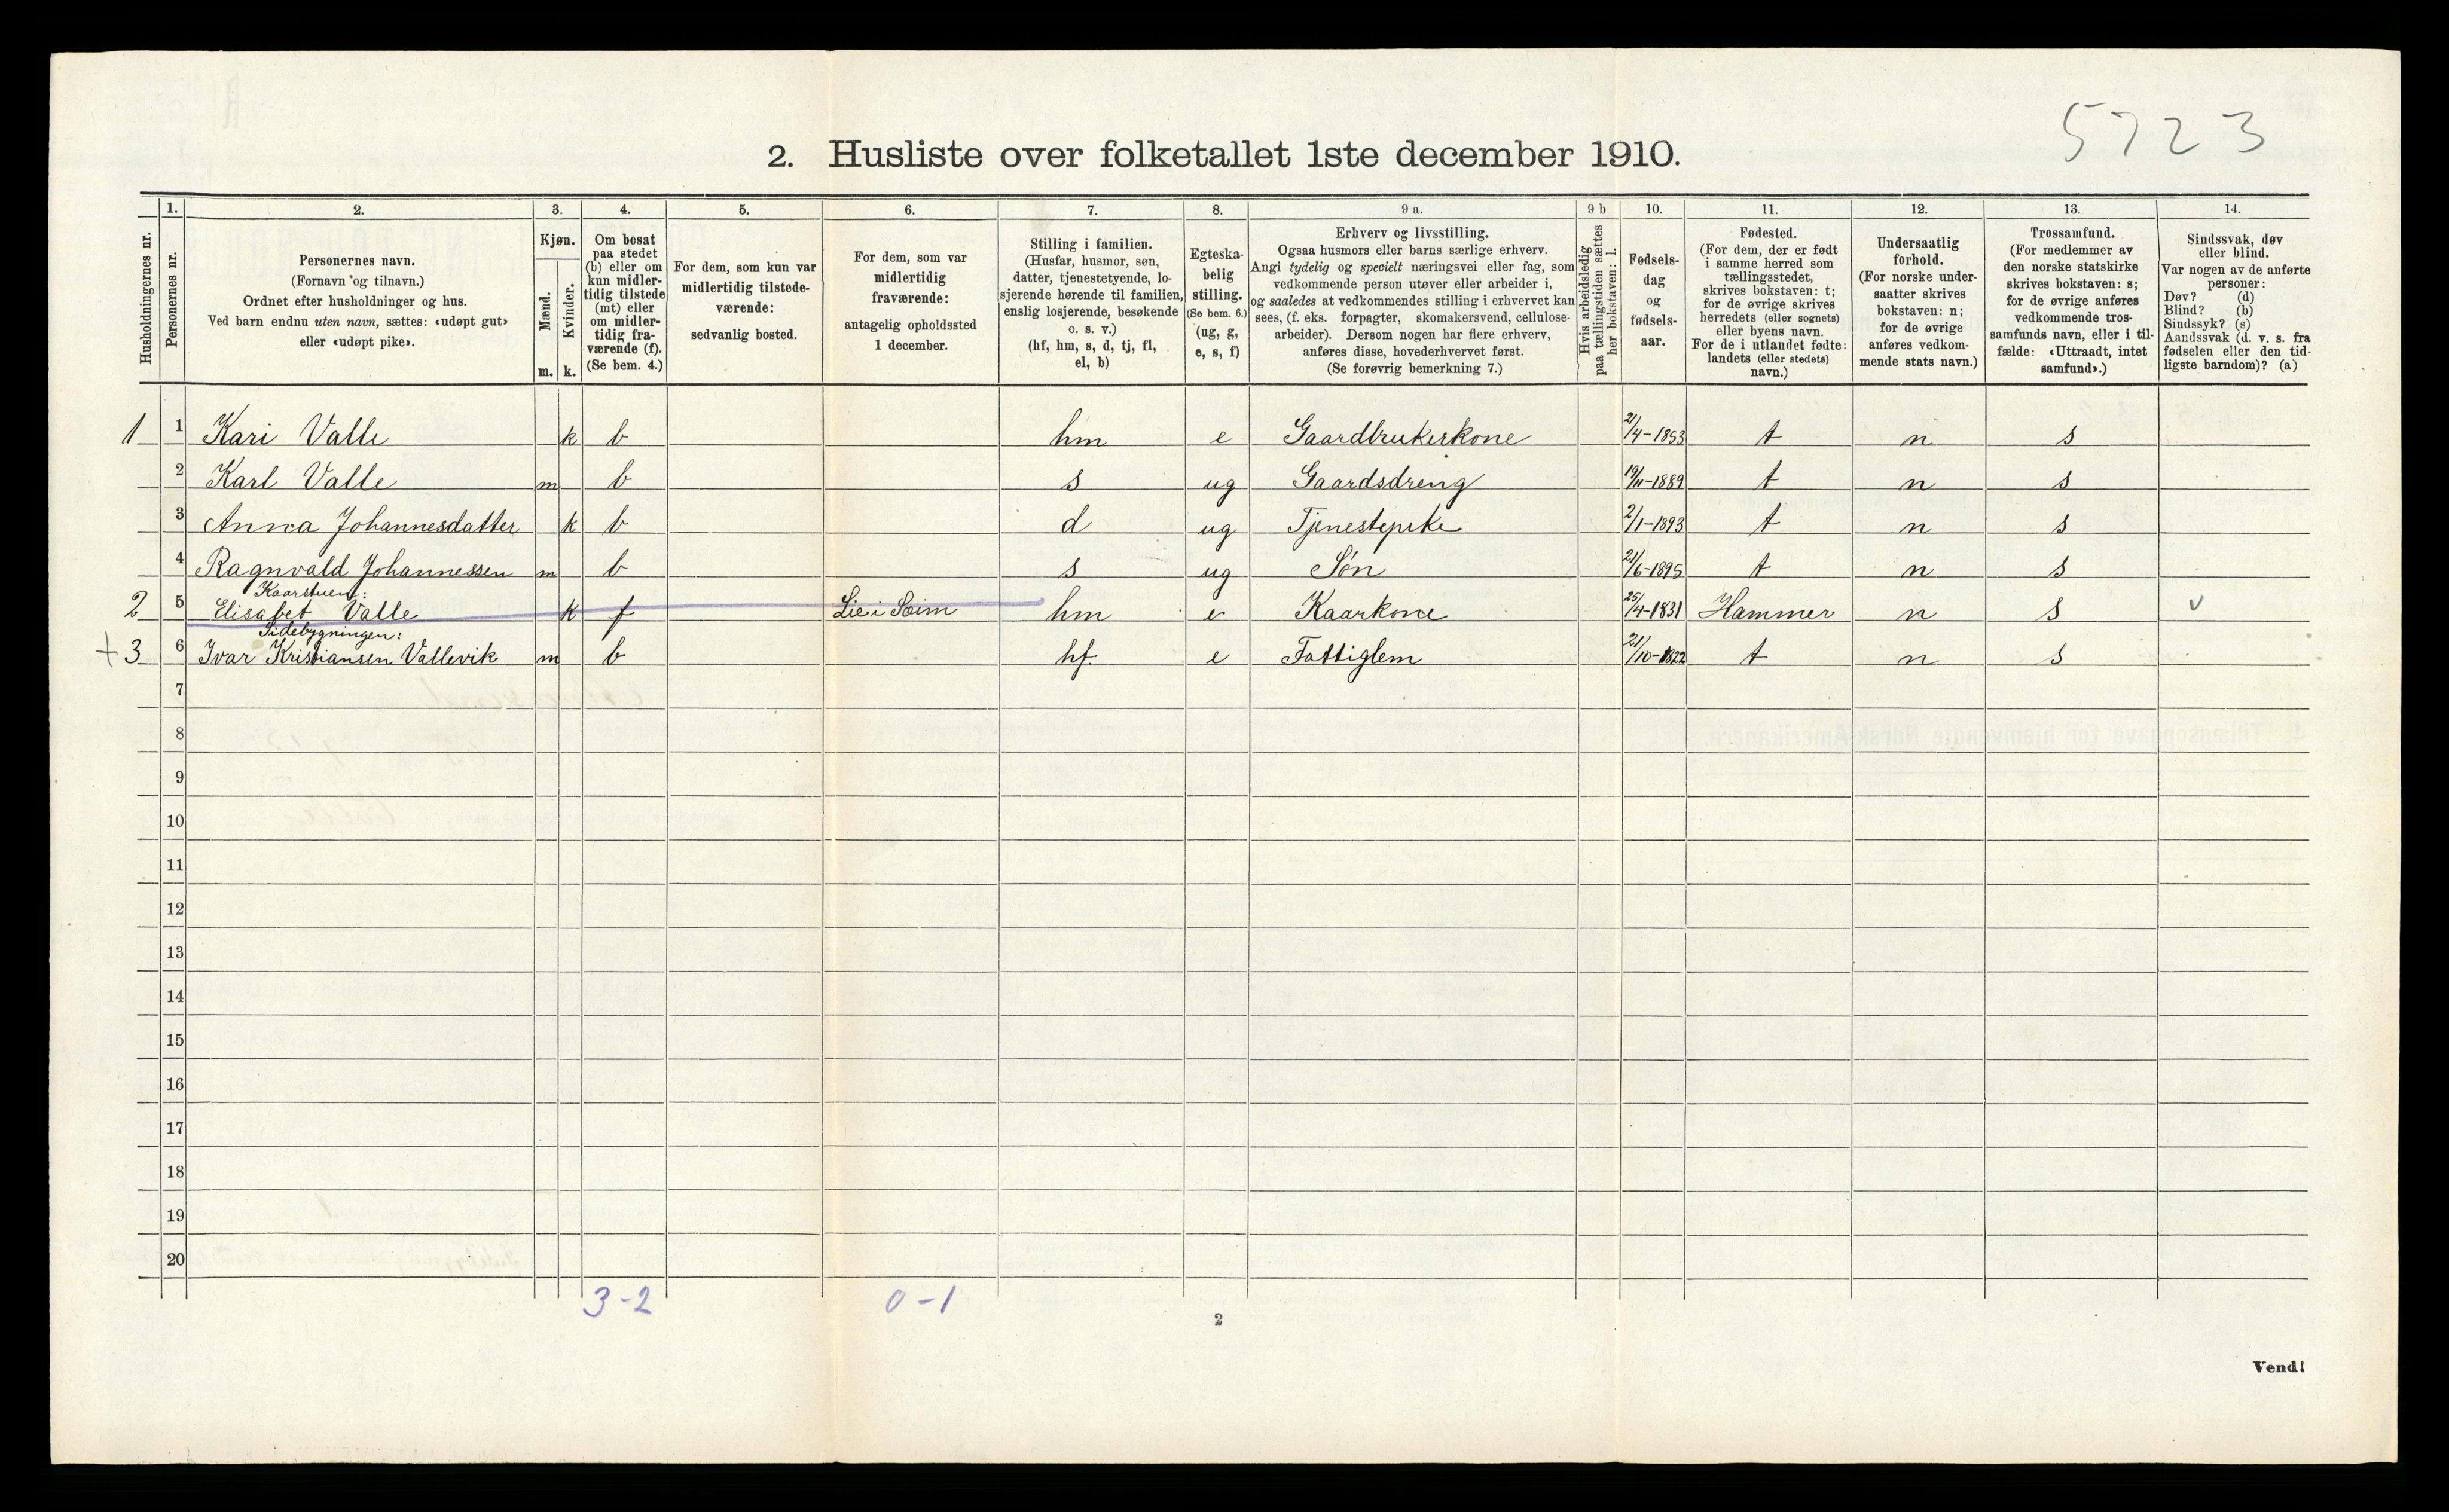 5723
2. Husliste over folketallet 1ste december 1910.
Husholdningernes nr.
1.
Personernes nr.
2.
Personernes navn.
(Fornavn og tilnavn.)
Ordnet efter husholdninger og hus.
Ved barn endnu uten navn, sættes: «udøpt gut»
eller «udøpt pike».
3.
Kjøn.
Mænd.
Kvinder.
m. k.
4.
Om bosat
paa stedet
(b) eller om
kun midler-
tidig tilstede
(mt) eller
om midler-
tidig fra-
værende (f).
(Se bem. 4.)
5.
For dem, som kun var
midlertidig tilstede-
værende:
sedvanlig bosted.
6.
For dem, som var
midlertidig
fraværende:
antagelig opholdssted
1 december.
7.
Stilling i familien.
(Husfar, husmor, søn,
datter, tjenestetyende, lo-
sjerende hørende til familien,
enslig losjerende, besøkende
o. s. v.)
(hf, hm, s, d, tj, fl,
el, b)
8.
Egteska-
belig
stilling.
(Se bem. 6.)
(ug, g,
e, s, f)
9 a.
Erhverv og livsstilling.
Ogsaa husmors eller barns særlige erhverv.
Angi tydelig og specielt næringsvei eller fag, som
vedkommende person utøver eller arbeider i,
og saaledes at vedkommendes stilling i erhvervet kan
sees, (f. eks. forpagter, skomakersvend, cellulose-
arbeider). Dersom nogen har flere erhverv,
anføres disse, hovederhvervet først.
(Se forøvrig bemerkning 7.)
9 b
Hvis arbeidsledig
paa tællingstiden sættes
her bokstaven: l.
10.
Fødsels-
dag
og
fødsels-
aar.
11.
Fødested.
(For dem, der er født
i samme herred som
tællingsstedet,
skrives bokstaven: t;
for de øvrige skrives
herredets (eller sognets)
eller byens navn.
For de i utlandet fødte:
landets (eller stedets)
navn.)
12.
Undersaatlig
forhold.
(For norske under-
saatter skrives
bokstaven: n;
for de øvrige
anføres vedkom-
mende stats navn.)
13.
Trossamfund.
(For medlemmer av
den norske statskirke
skrives bokstaven: s;
for de øvrige anføres
vedkommende tros-
samfunds navn, eller i til-
fælde: «Uttraadt, intet
samfund».)
14.
Sindssvak, døv
eller blind.
Var nogen av de anførte
personer:
Døv? (d)
Blind? (b)
Sindssyk? (s)
Aandssvak (d. v. s. fra
fødselen eller den tid-
ligste barndom)? (a)
1 1 Kari Valle k b hm e Gaardbrukerkone 2/4-1853 t n s
2 Karl Valle m b s ug Gaardsdreng 19/11-1889 t n s
3 Anna Johannesdatter k b d ug Tjenestepike 2/1-1893 t n s
4 Ragnvald Johannessen m b s ug Søn 21/6-1895 t n s
Kaarstuen:
2 5 Elisabet Valle k f Lie i Seim hm e Kaarkone 25/4-1831 Hammer n s v
Sidebygningen:
+3 6 Ivar Kristiansen Vallevik m b hf. e Fattiglem 21/10-1822 t n s
7
8
9
10
11
12
13
14
15
16
17
18
19
20
3-2 0-1
2
Vend!